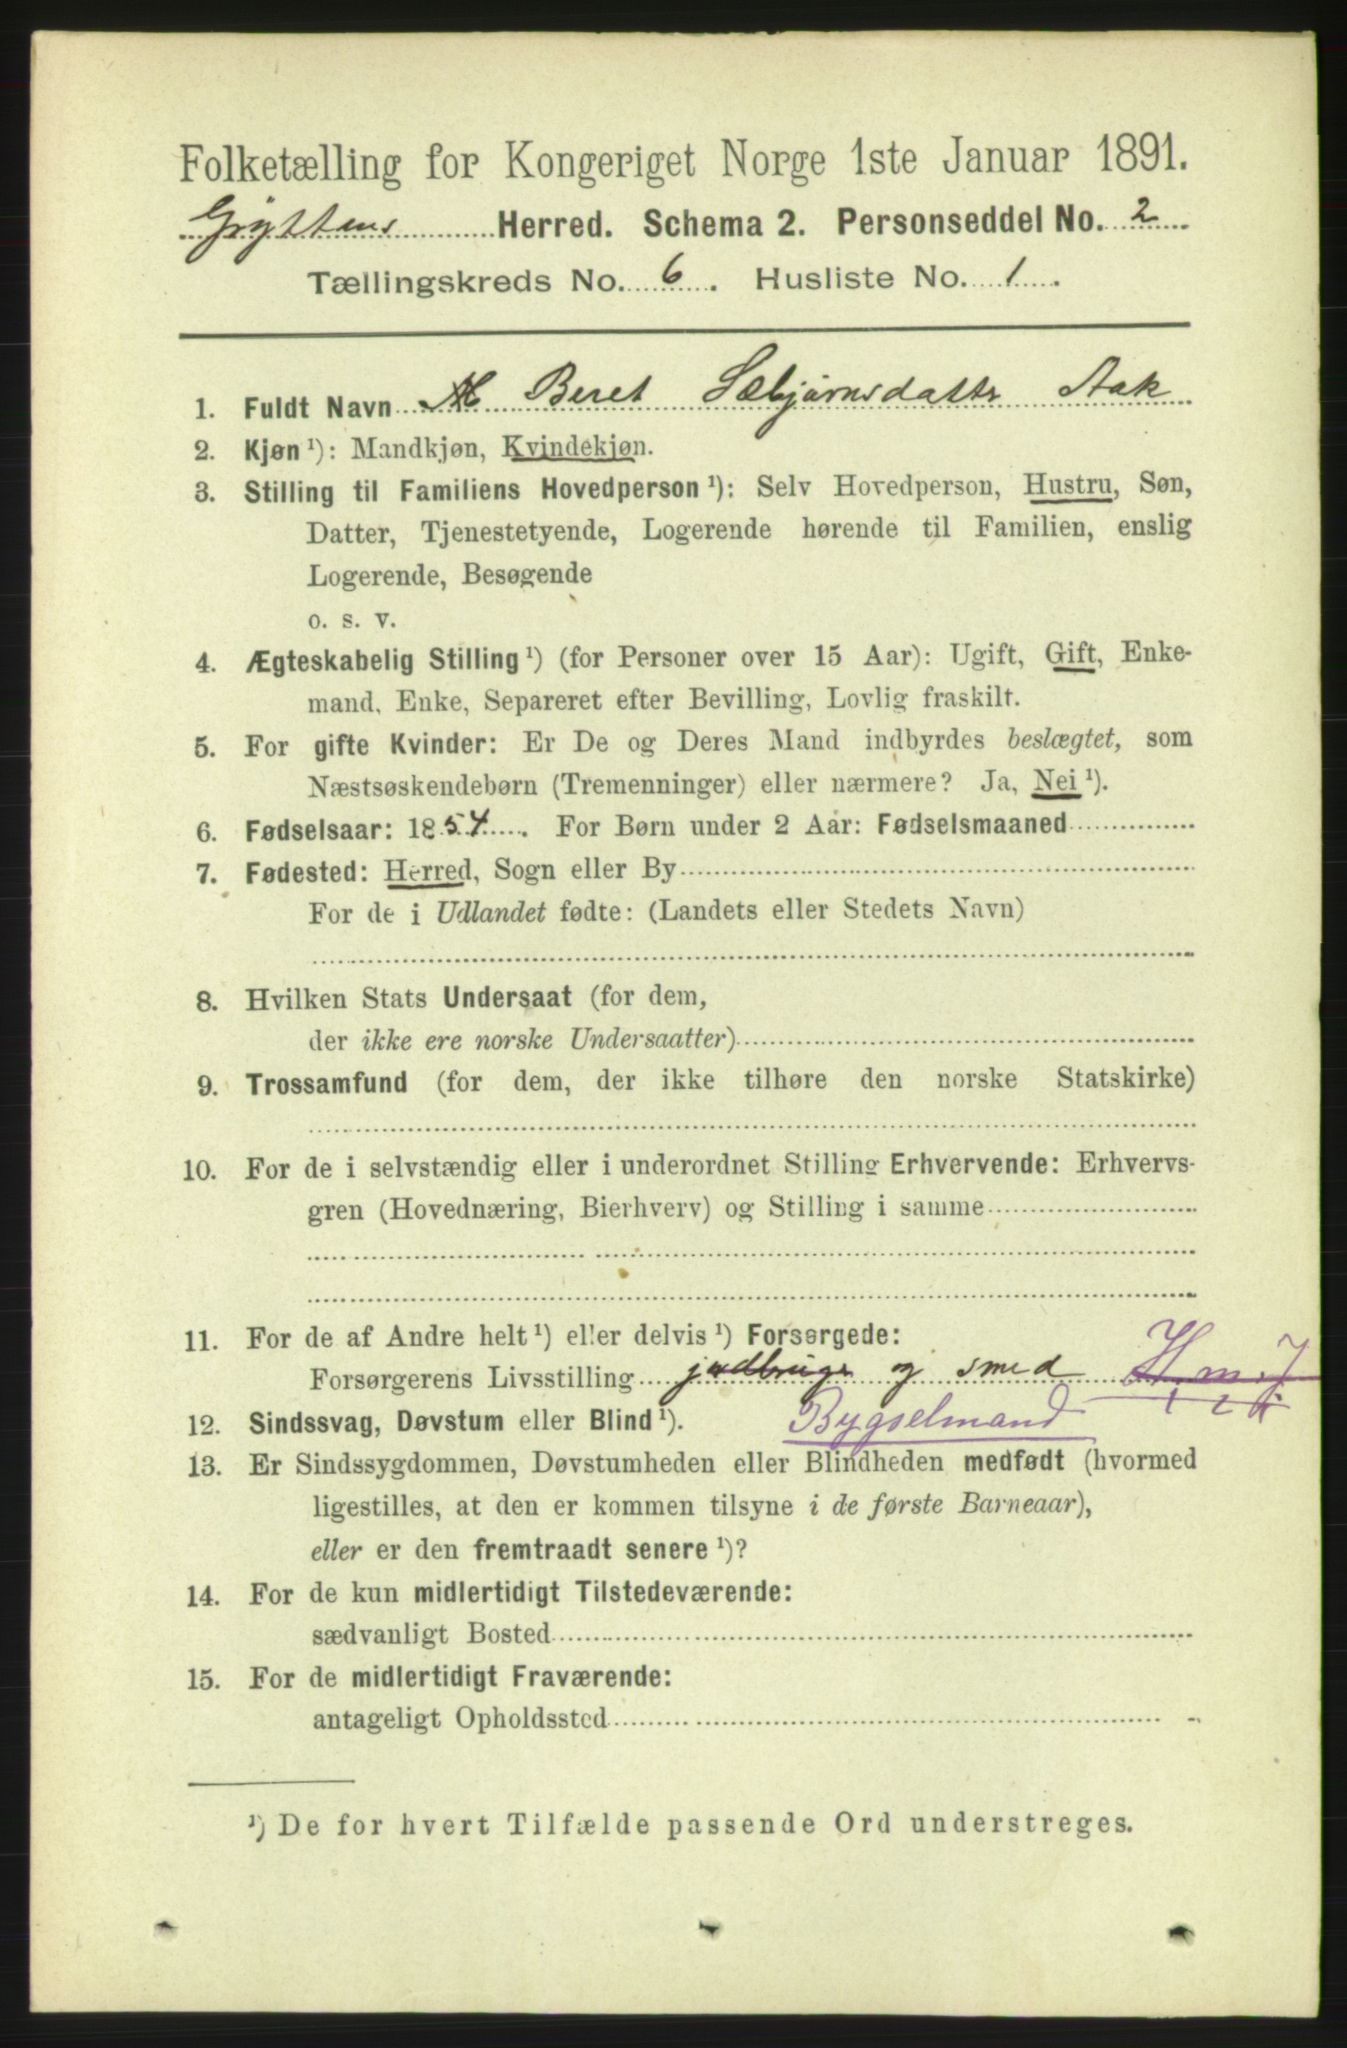 Folketælling for Kongeriget Norge 1ste Januar 1891.
Gryttens Herred. Schema 2. Personseddel No. 2
Tællingskreds No. 6. Husliste No. 1.
1. Fuldt Navn Beret Sæbjørnsdatter Aak
2. Kjøn ¹): Mandkjøn, Kvindekjøn.
3. Stilling til Familiens Hovedperson ¹): Selv Hovedperson, Hustru, Søn,
Datter, Tjenestetyende, Logerende hørende til Familien, enslig
Logerende, Besøgende
o. s. v.
4. Ægteskabelig Stilling ¹) (for Personer over 15 Aar): Ugift, Gift, Enke-
mand, Enke, Separeret efter Bevilling, Lovlig fraskilt.
5. For gifte Kvinder: Er De og Deres Mand indbyrdes beslægtet, som
Næstsøskendebørn (Tremenninger) eller nærmere? Ja, Nei ¹).
6. Fødselsaar: 1854. For Børn under 2 Aar: Fødselsmaaned
7. Fødested: Herred, Sogn eller By
For de i Udlandet fødte: (Landets eller Stedets Navn)
8. Hvilken Stats Undersaat (for dem,
der ikke ere norske Undersaatter)
9. Trossamfund (for dem, der ikke tilhøre den norske Statskirke)
10. For de i selvstændig eller i underordnet Stilling Erhvervende: Erhvervs-
gren (Hovednæring, Bierhverv) og Stilling i samme
11. For de af Andre helt ¹) eller delvis ¹) Forsørgede:
Forsørgerens Livsstilling jordbruger og smed H. m. J
12. Sindssvag, Døvstum eller Blind ¹). Bygselmand
13. Er Sindssygdommen, Døvstumheden eller Blindheden medfødt (hvormed
ligestilles, at den er kommen tilsyne i de første Barneaar),
eller er den fremtraadt senere ¹)?
14. For de kun midlertidigt Tilstedeværende:
sædvanligt Bosted
15. For de midlertidigt Fraværende:
antageligt Opholdssted
¹) De for hvert Tilfælde passende Ord understreges.